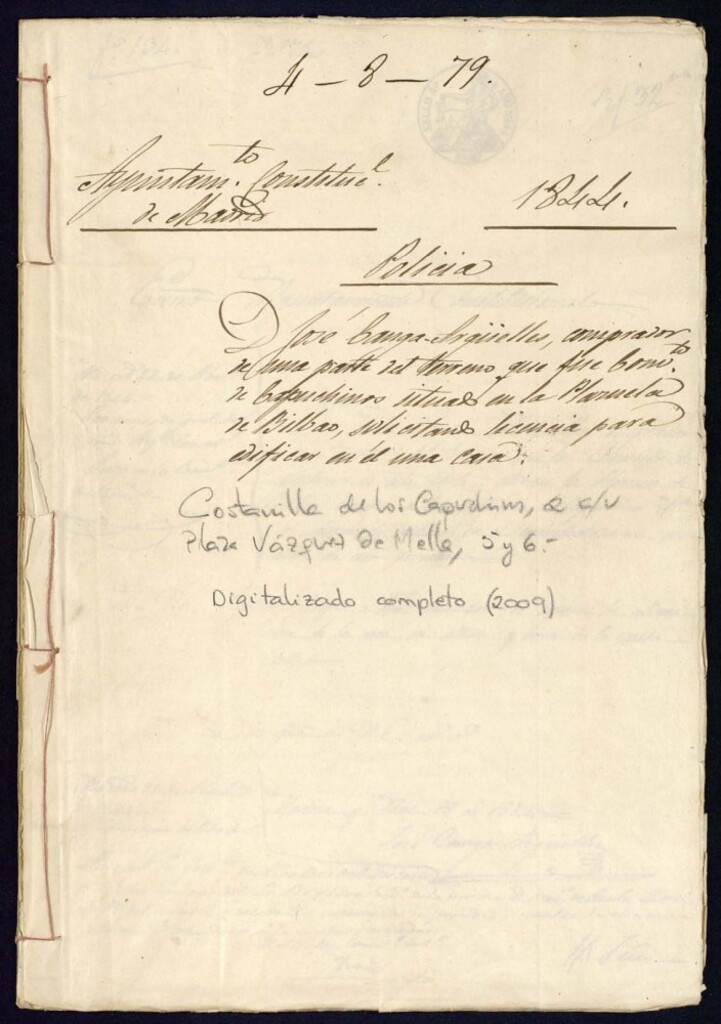 4-8-79.
Ayuntam.to Constituc.l
de Madrid
1844.
Policia
D José Canga-Argüelles, comprador
de una parte del terreno que fue Conv.to
de Capuchinos situado en la Plazuela
de Bilbao, solicitando licencia para
edificar en él una casa.
Costanilla de los Capuchinos, 2 c/v
Plaza Vázquez de Mella, 5 y 6.-
Digitalizado completo (2009)